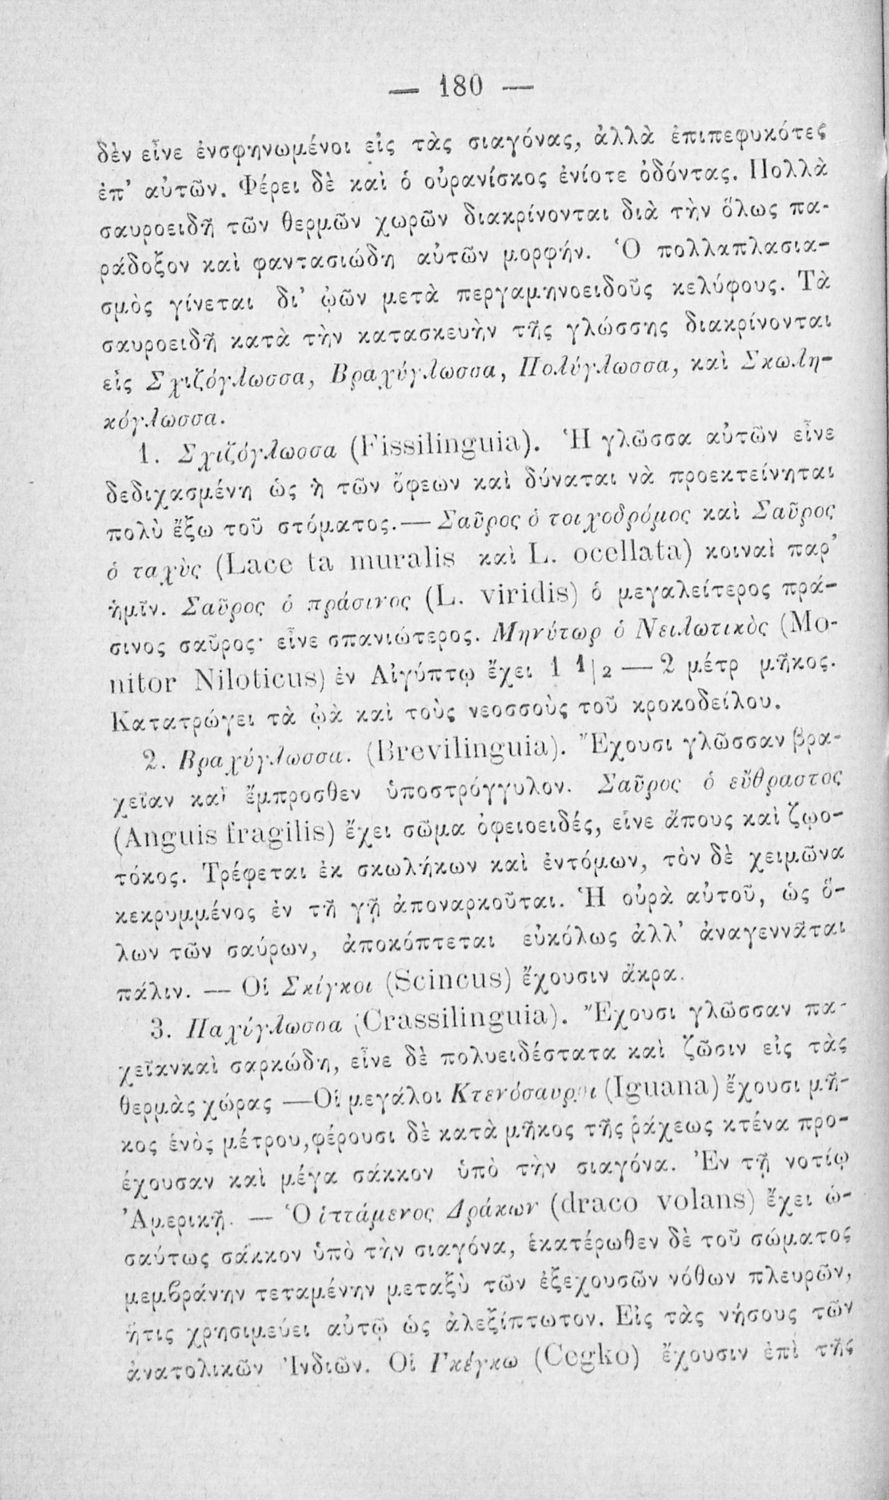 — 180 —
δὲν εἶνε ἐνσφηνωμένοι εἰς τὰς σιαγόνας, ἀλλὰ ἐπιπεφυκότες
ἐπ’ αὐτῶν. Φέρει δὲ καὶ ὁ οὐρανίσκος ἐνίοτε ὀδόντας. Πολλὰ
σαυροειδῆ τῶν θερμῶν χωρῶν διακρίνονται διὰ τὴν ὅλως πα-
ράδοξον καὶ φαντασιώδη αὐτῶν μορφήν. Ὁ πολλαπλασια-
σμὸς γίνεται δι’ ᾠῶν μετὰ περγαμηνοειδοῦς κελύφους. Τὰ
σαυροειδῆ κατὰ τὴν κατασκευὴν τῆς γλώσσης διακρίνονται
εἰς Σχιζόγλωσσα, Βραχύγλωσσα, Πολύγλωσσα, καὶ Σκωλη-
κόγλωσσα.
1. Σχιζόγλωσσα (Fissilinguia). Ἡ γλῶσσα αὐτῶν εἶνε
δεδιχασμένη ὡς ἡ τῶν ὄφεων καὶ δύναται νὰ προεκτείνηται
πολὺ ἔξω τοῦ στόματος.— Σαῦρος ὁ τοιχοδρόμος καὶ Σαῦρος
ὁ ταχὺς (Lace ta muralis καὶ L. ocellata) κοιναὶ παρ’
ἡμῖν. Σαῦρος ὁ πράσινος (L. viridis) ὁ μεγαλείτερος πρά-
σινος σαῦρος· εἶνε σπανιώτερος. Μηνύτωρ ὁ Νειλωτικὸς (Mo-
nitor Niloticus) ἐν Αἰγύπτῳ ἔχει 1 1|2 — 2 μέτρ μῆκος.
Κατατρώγει τὰ ᾠὰ καὶ τοὺς νεοσσοὺς τοῦ κροκοδείλου.
2. Βραχύγλωσσα. (Brevilinguia). Ἔχουσι γλῶσσαν βρα-
χεῖαν καὶ ἔμπροσθεν ὑποστρόγγυλον. Σαῦρος ὁ εὔθραστος
(Anguis fragilis) ἔχει σῶμα ὀφειοειδές, εἶνε ἄπους καὶ ζῳο-
τόκος. Τρέφεται ἐκ σκωλήκων καὶ ἐντόμων, τὸν δὲ χειμῶνα
κεκρυμμένος ἐν τῇ γῇ ἀποναρκοῦται. Ἡ οὐρὰ αὐτοῦ, ὡς ὅ-
λων τῶν σαύρων, ἀποκόπτεται εὐκόλως ἀλλ’ ἀναγεννᾶται
πάλιν. — Οἱ Σκίγκοι (Scincus) ἔχουσιν ἄκρα.
3. Παχύγλωσσα (Crassilinguia). Ἔχουσι γλῶσσαν πα-
χεῖανκαὶ σαρκώδη, εἶνε δὲ πολυειδέστατα καὶ ζῶσιν εἰς τὰς
θερμὰς χώρας —Οἱ μεγάλοι Κτενόσαυροι (Iguana) ἔχουσι μῆ-
κος ἑνὸς μέτρου,φέρουσι δὲ κατὰ μῆκος τῆς ῥάχεως κτένα προ-
έχουσαν καὶ μέγα σάκκον ὑπὸ τὴν σιαγόνα. Ἐν τῇ νοτίῳ
Ἀμερικῇ. — Ὁ ἱπτάμενος Δράκων (draco volans) ἔχει ὡ-
σαύτως σάκκον ὑπὸ τὴν σιαγόνα, ἑκατέρωθεν δὲ τοῦ σώματος
μεμβράνην τεταμένην μεταξὺ τῶν ἐξεχουσῶν νόθων πλευρῶν,
ἥτις χρησιμεύει αὐτῷ ὡς ἀλεξίπτωτον. Εἰς τὰς νήσους τῶν
ἀνατολικῶν Ἰνδιῶν. Οἱ Γκέγκω (Cegko) ἔχουσιν ἐπὶ τῆς